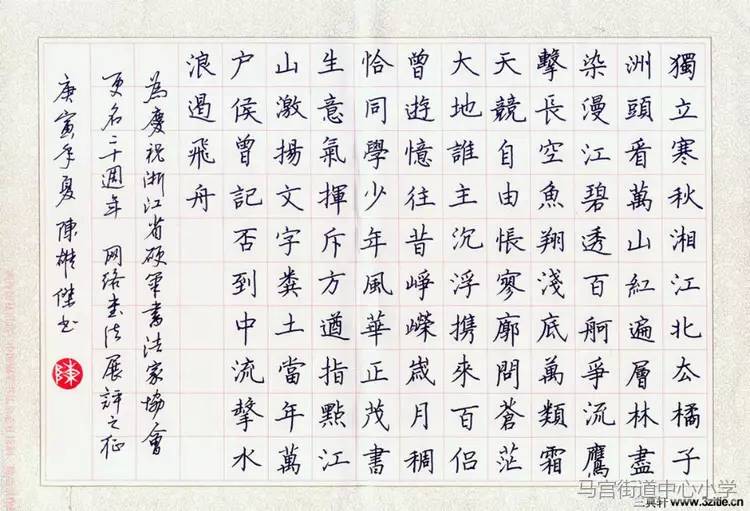 獨立寒秋湘江北厺橘子
洲頭看萬山紅遍層林盡
染漫江碧透百舸爭流鷹
擊長空魚翔淺底萬類霜
天競自由悵寥廓問蒼茫
大地誰主沉浮携來百侣
曾遊憶往昔崢嶸歲月稠
恰同學少年風華正茂書
生意氣揮斥方遒指點江
山激揚文字糞土當年萬
户侯曾記否到中流擊水
浪遏飛舟
為慶祝浙江省硬筆書法家協會
更名二十週年 网络书法展評之征
庚寅年夏陳雄傑书
陳
马宫街道中心小学
三典轩 www.3zitie.cn